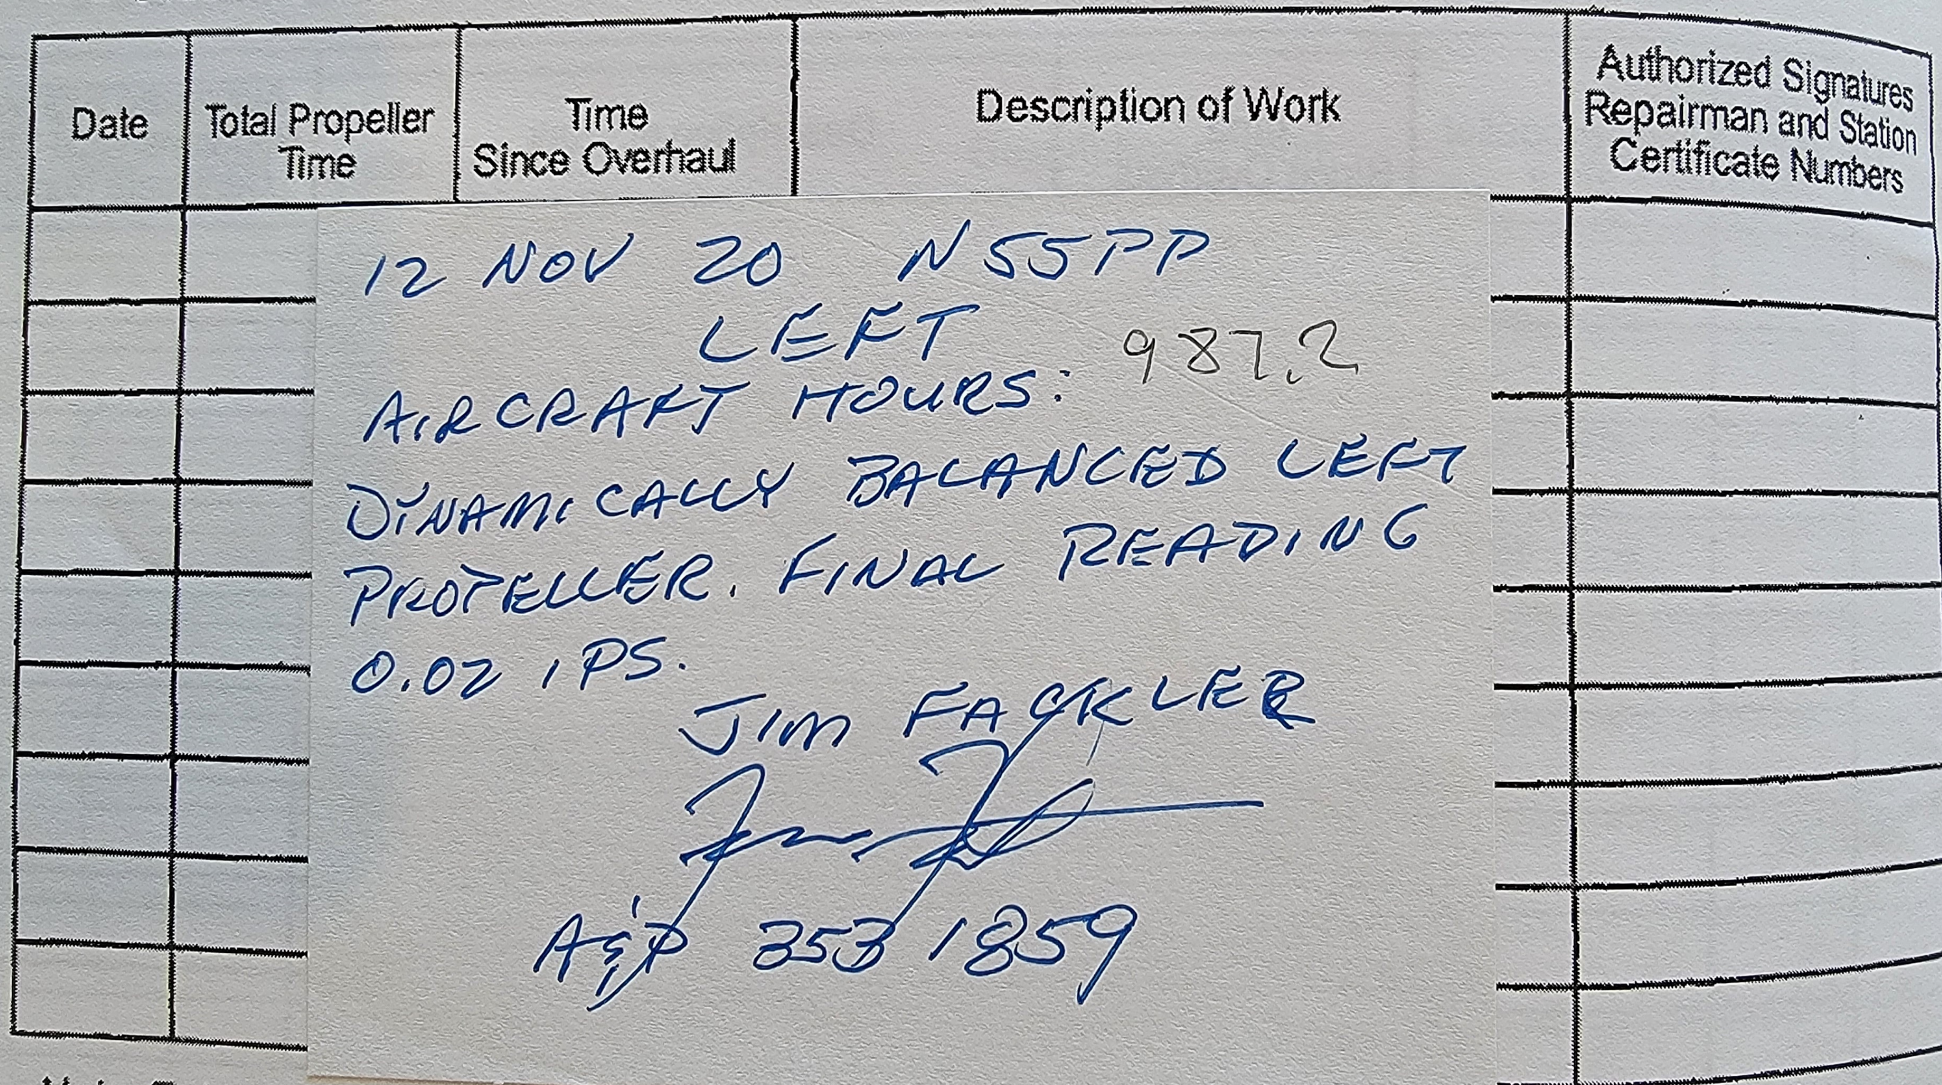 Date
Total Propeller
Time
Time
Since Overhaul
Description of Work
Authorized Signatures
Repairman and Station
Certificate Numbers
12 NOV 20 N55PP
LEFT
AIRCRAFT HOURS: 987.2
DYNAMICALLY BALANCED LEFT
PROPELLER. FINAL READING
0.02 IPS.
JIM FACKLER
A&P 3531859